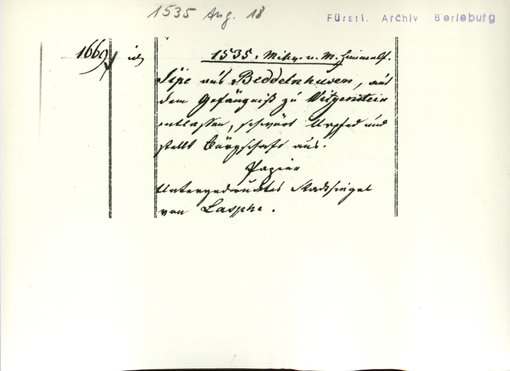 1535 Aug. 18
Fürstl. Archiv Berleburg
1669
1535. Mitw. n. M. Himmelf.
Sipe aus Beddelnhusen, aus
dem Gefängniß zu Witgenstein
entlassen, schwört Urphed und
stellt Bürgschaft aus.
Papier
Untergedrucktes Stadtsiegel
von Laasphe.